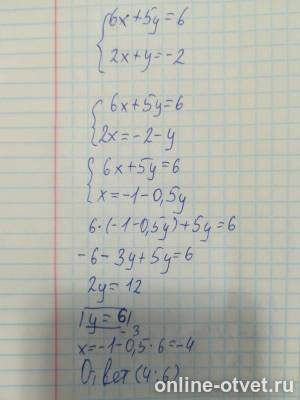 6x+5y=6
2x+y=-2
6x+5y=6
2x=-2-y
6x+5y=6
x=-1-0,5y
6·(-1-0,5y)+5y=6
-6-3y+5y=6
2y=12
y=6
-3
x=-1-0,5·6=-4
Ответ(4;6)
online-otvet.ru